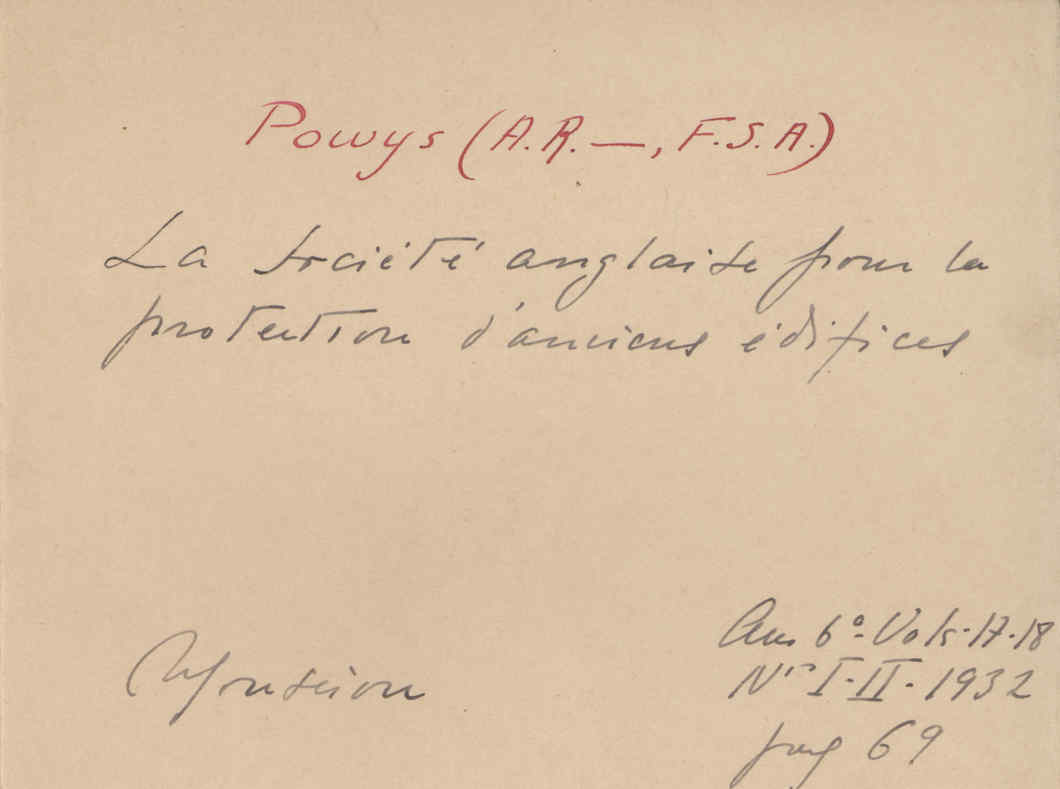 Powys (A.R.—, F.S.A.)
La société anglaise pour la
protection d'anciens édifices
Mouseion
Ann 6º- Vols-17-18
Nrs I-II- 1932
pag 69